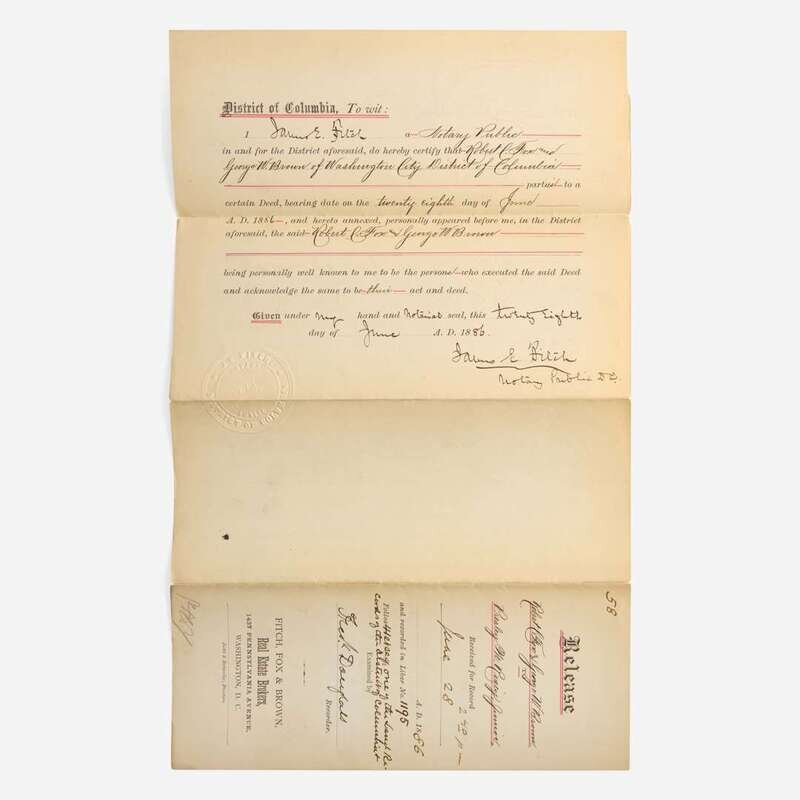 District of Columbia, To wit:
I James E. Fitch a Notary Public
in and for the District aforesaid, do hereby certify that Robert C. Fox and
George W. Brown of Washington City District of Columbia
parties to a
certain Deed, bearing date on the twenty eighth day of June
A. D. 1886, and hereto annexed, personally appeared before me, in the District
aforesaid, the said Robert C. Fox & George W. Brown
being personally well known to me to be the persons who executed the said Deed
and acknowledge the same to be their act and deed.
Given under my hand and Notarial seal, this twenty eighth
day of June A. D. 1886.
James E. Fitch
Notary Public D.C.
58
Release
Robert C. Fox & George W. Brown
to
Junior
Received for Record 2 40 p m
June 28
A. D. 1886
and recorded in Liber No. 1195
Folio one of the Land Re-
cords of the District of Columbia
Examined by
Fred.k Douglass
Recorder.
FITCH, FOX & BROWN,
Real Estate Brokers,
1437 PENNSYLVANIA AVENUE,
WASHINGTON, D. C.